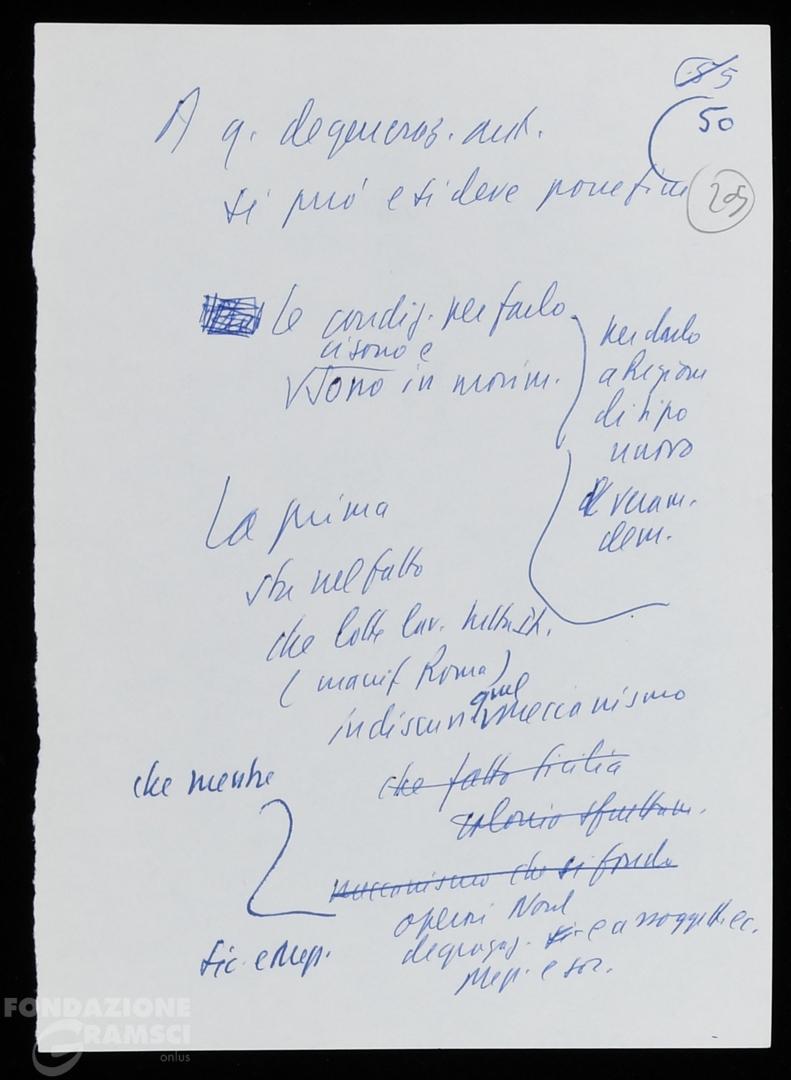 55
50
205
A q. degeneraz. aut.
si può e si deve porre fine
Le condiz. per farlo
ci sono e
sono in movim.
per darlo
a Regione
di tipo
nuovo
e veram.
dem.
La prima
sta nel fatto
che lotte lav.
(manif Roma)
in discuss. quel meccanismo
che mentre
che fatto Sicilia
colonia sfruttam.
meccanismo che si fonda
operai Nord
degradaz. e assoggett. ec.
Mer. e soc.
Sic. e Mer.
FONDAZIONE
GRAMSCI
onlus